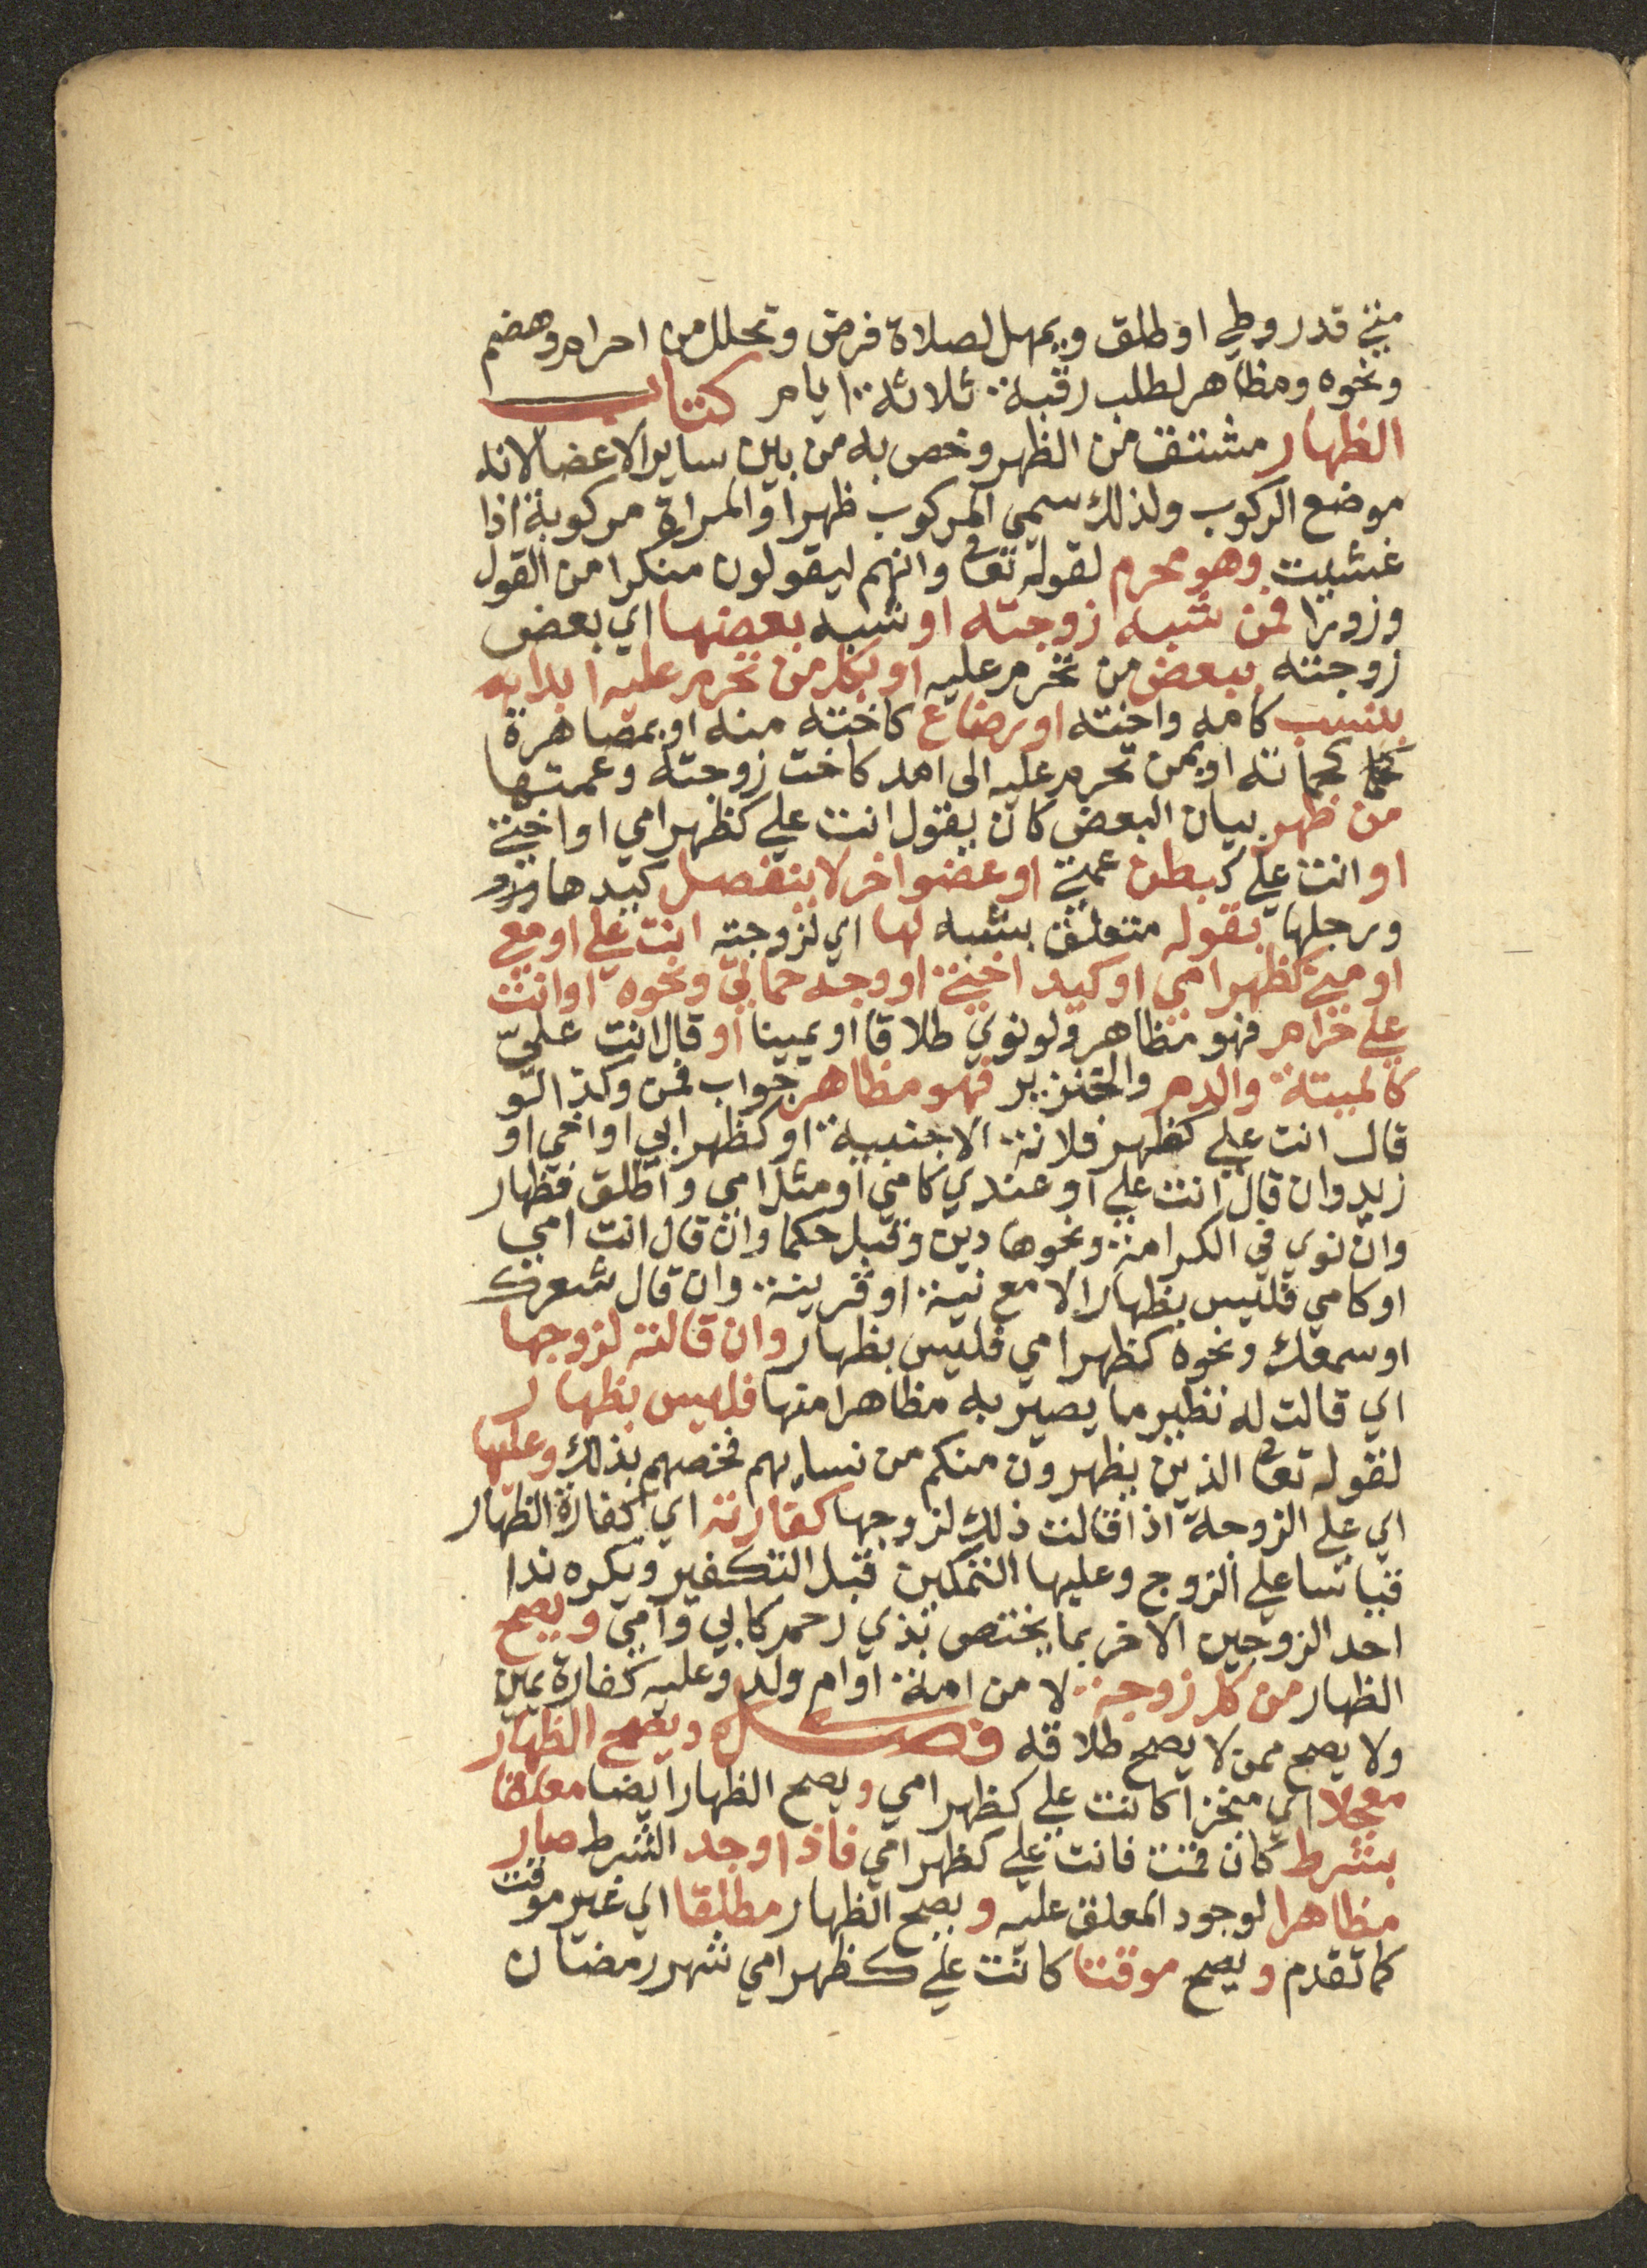 متى قدر وطي او طلق ويمهل لصلاة فرض وتحلل من احرام وهضم
ونحوه ومظاهر لطلب رقبة ثلاثة ايام كتاب
الظهار مشتق من الظهر وخص به من بين ساير الاعضا لانه
موضع الركوب ولذلك سمي المركوب ظهرا والمراة مركوبة اذا
غشيت وهو محرم لقوله تعا وانهم ليقولون منكرا من القول
وزورا فمن شبه زوجته او شبه بعضها اي بعض
زوجته ببعض من تحرم عليه او بكل من تحرم عليه ابدا به
بنسب كامه واخته او برضاع كاخته منه او بمصاهرة
كحماته او بمن تحرم عليه الى امد كاخت زوجته وعمتها
من ظهر بيان البعض كان يقول انت علي كظهر امي او اختي
او انت علي كبطن عمتي او عضو اخر لا ينفصل كيدها
ورجلها بقوله متعلق بشبه لها اي لزوجته انت علي او معي
او مني كظهر امي او كيد اختي او وجه حماتي ونحوه او انت
علي حرام فهو مظاهر ولو نوي طلاقا او يمينا او قال انت عليّ
كالميتة والدم والخنزير فهو مظاهر جواب فمن وكذا لو
قال انت علي كظهر فلانة الاجنبية او كظهر ابي او اخي او
زيد وان قال انت علي او عندي كامي او مثل امي واطلق فظهار
وان نوي في الكرامة ونحوها دين وقبل حكما وان قال انت امي
او كامي فليس بظهار الا مع نية او قرينة وان قال شعرك
او سمعك ونحوه كظهر امي فليس بظهار وان قالته لزوجها
اي قالت له نظير ما يصير به مظاهرا منها فليس بظهار
لقوله تعا الذين يظهرون منكم من نسايهم فخصهم بذلك وعليها
اي علي الزوجة اذا قالت ذلك لزوجها كفارته اي كفارة الظهار
قياسا علي الزوج وعليها التمكين قبل التكفير ويكره ندا
احد الزوجين الاخر بما يختص بذي رحم كابي وامي ويصح
الظهار من كل زوجة لا من امة او ام ولد وعليه كفارة يمين
ولا يصح ممن لا يصح طلاقه فصل ويصح الظهار
معجلا اي منجزا كانت علي كظهر امي ويصح الظهار ايضا معلقا
بشرط كان قمت فانت علي كظهر امي فاذا وجد الشرط صار
مظاهرا لوجود المعلق عليه ويصح الظهار مطلقا اي غير موقت
كما تقدم ويصح موقتا كانت علي كظهر امي شهر رمضان